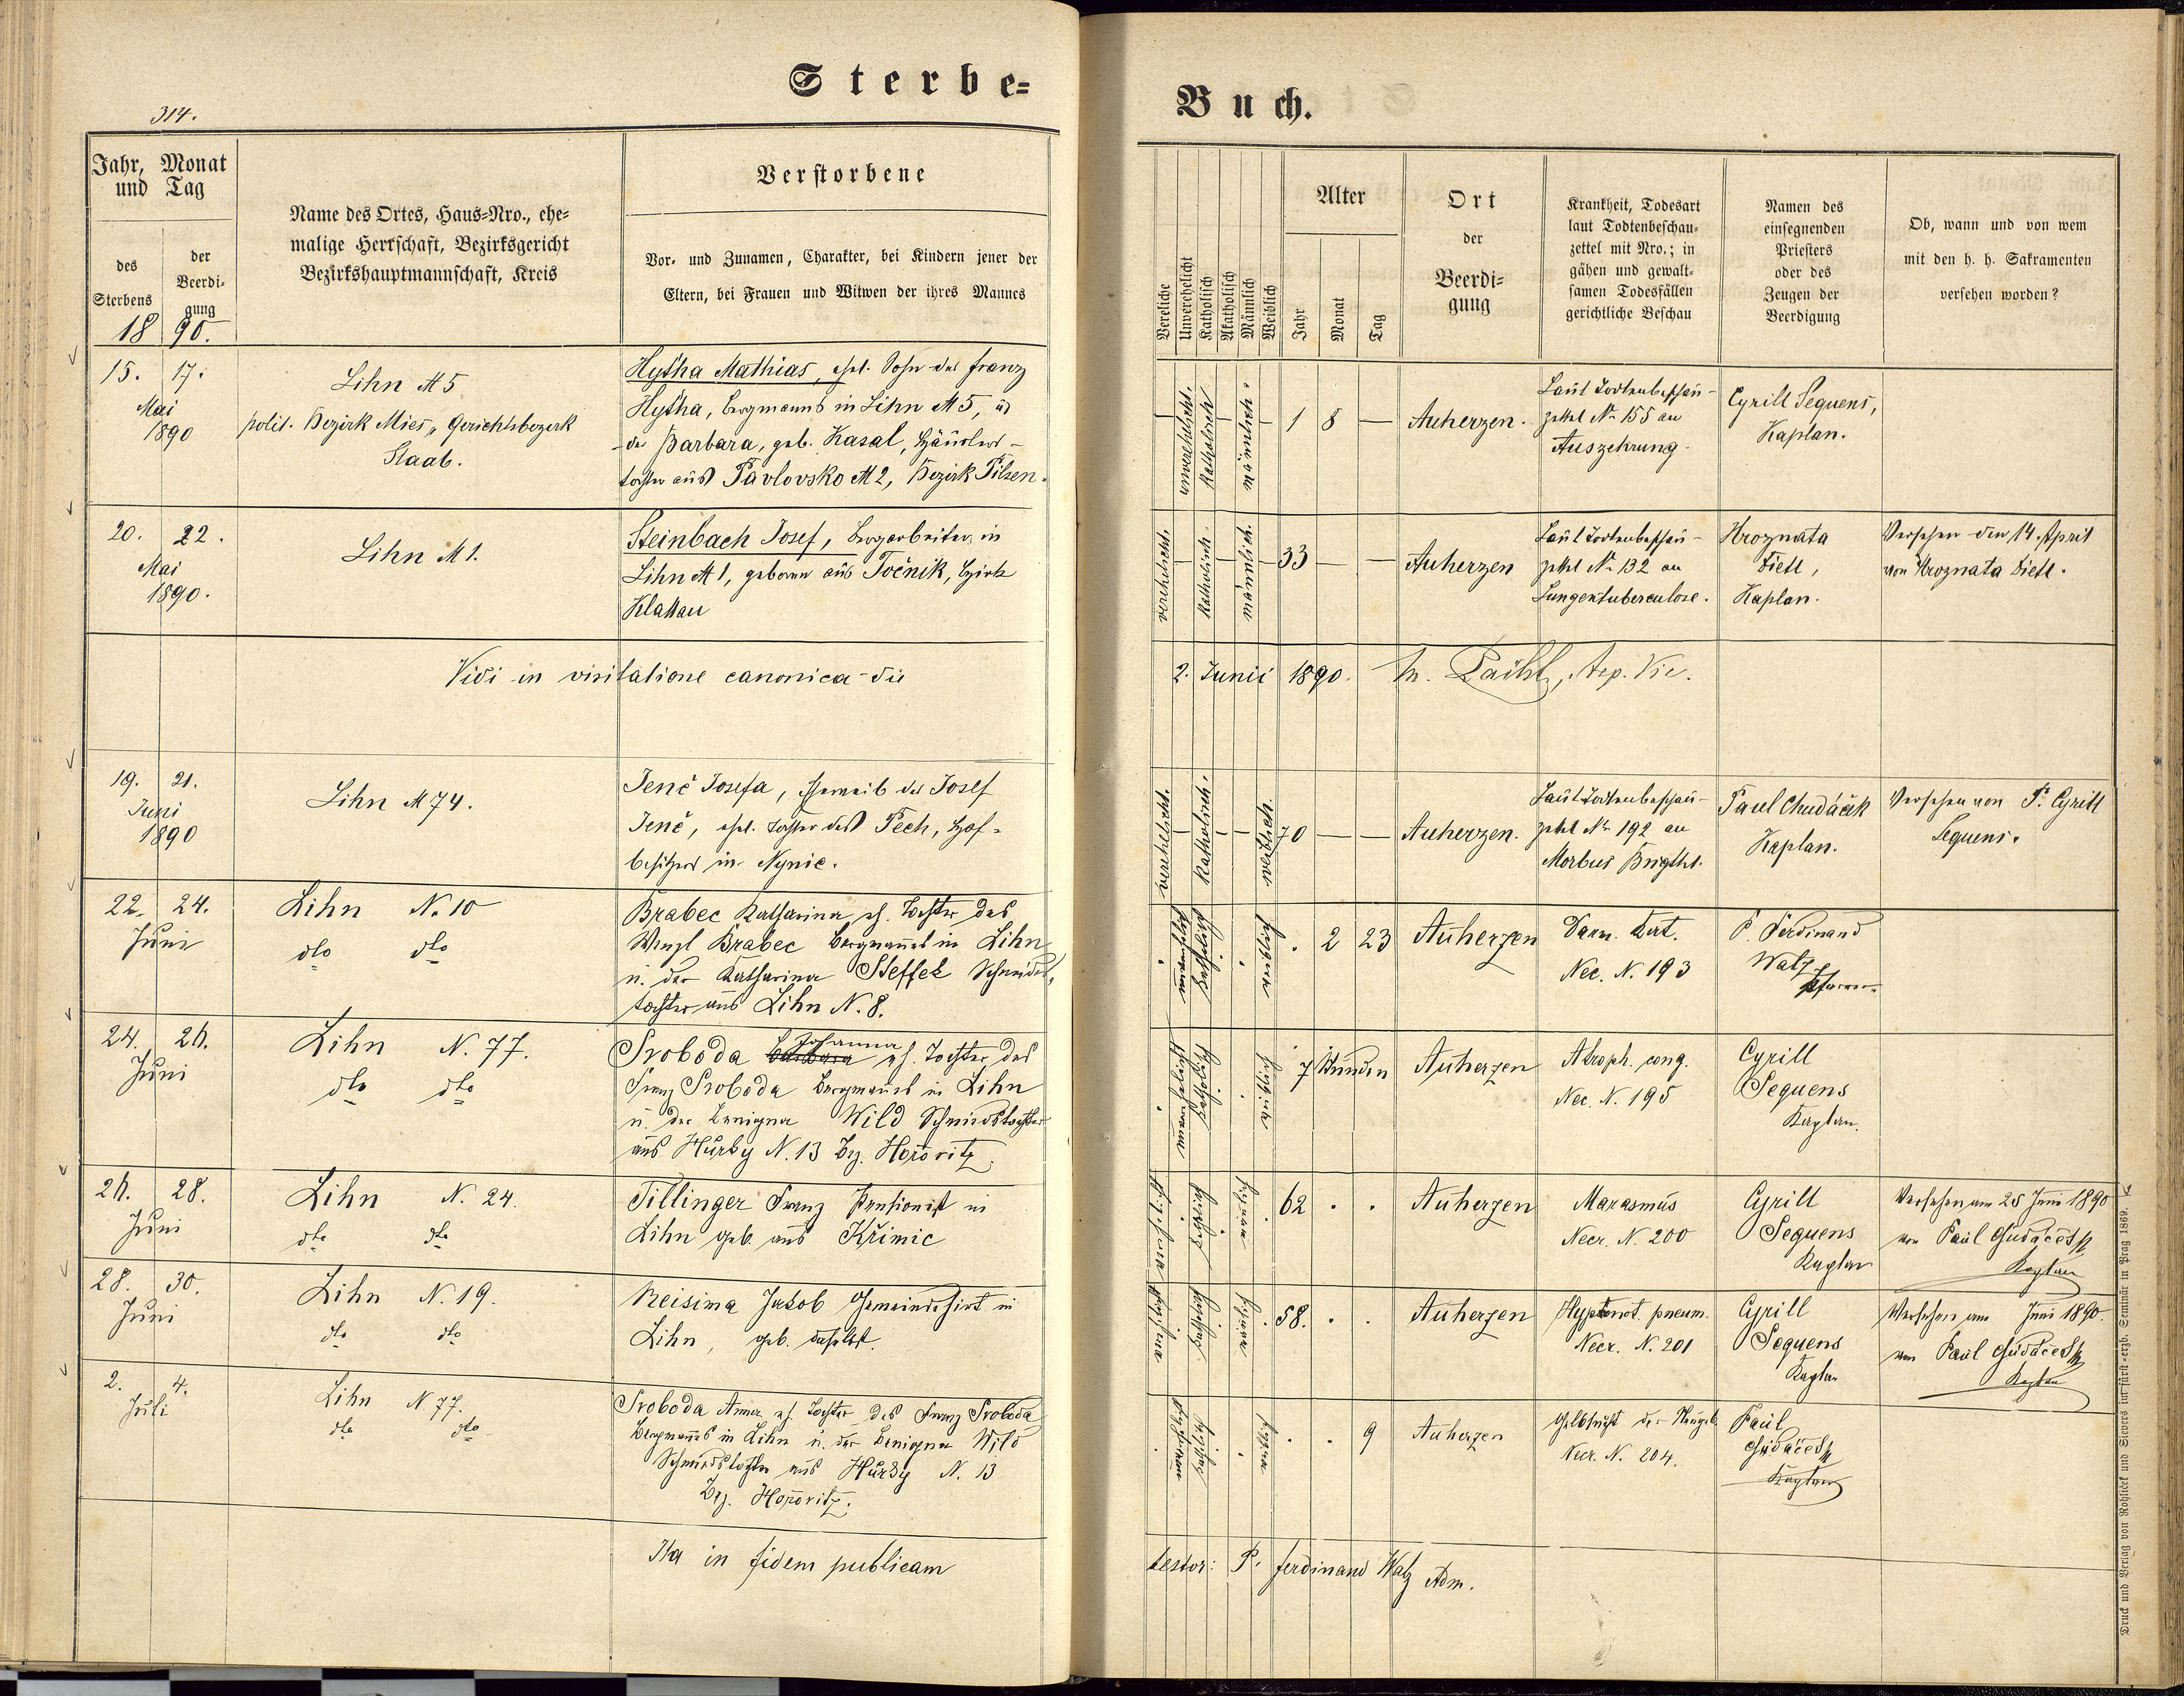 Sterbe-
Buch.
314.
Jahr, Monat
und Tag
des
Sterbens
der
Beerdi-
gung
18 90.
Name des Ortes, Haus-Nro., ehe-
malige Herrschaft, Bezirksgericht
Bezirkshauptmannschaft, Kreis
Verstorbene
Vor- und Zunamen, Charakter, bei Kindern jener der
Eltern, bei Frauen und Witwen der ihres Mannes
Vereliche
Unverehelicht
Katholisch
Akatholisch
Männlich
Weiblich
Alter
Jahr
Monat
Tag
Ort
der
Beerdi-
gung
Krankheit, Todesart
laut Todtenbeschau-
zettel mit Nro.; in
gähen und gewalt-
samen Todesfällen
gerichtliche Beschau
Namen des
einsegnenden
Priesters
oder des
Zeugen der
Beerdigung
Ob, wann und von wem
mit den h. h. Sakramenten
versehen worden?
15. 17.
Mai
1890
Lihn № 5
polit. Bezirk Mies, Gerichtsbezirk
Staab.
Hytha Mathias, ehel. Sohn des Franz
Hytha, Bergmanns in Lihn № 5, u
der Barbara, geb. Kasal, Häuslers-
tochter aus Pavlovsko № 2, Bezirk Pilsen.
unverehelicht.
Katholisch
männlich.
1 8 —
Auherzen.
Laut Todtenbeschau-
zettel № 155 an
Auszehrung.
Cyrill Sequens,
Kaplan.
20. 22.
Mai
1890.
Lihn № 1.
Steinbach Josef, Bergarbeiter in
Lihn № 1, geboren aus Točnik, Bezirk
Klattau
verehelicht
Katholisch
männlich.
33 — —
Auherzen
Laut Todtenbeschau-
zettel № 132 an
Lungentuberculose.
Hroznata
Dietl,
Kaplan.
Versehen den 14. April
von Hroznata Dietl.
Vidi in visitatione canonica die
2. Junii 1890.
19. 21.
Juni
1890
Lihn № 74.
Jenč Josefa, Eheweib des Josef
Jenč, ehel. Tochter des Pech, Hof-
besitzers in Nynic.
verehelicht.
Katholisch.
weiblich
70 — —
Auherzen.
Laut Todtenbeschau-
zettel № 192 an
Morbus Brigthi.
Paul Chudáček
Kaplan.
Versehen von P. Cyrill
Sequens.
22. 24.
Juni
Lihn N. 10
dto dto
Brabec Katharina eh. Tochter des
Wenzl Brabec Bergmanns in Lihn
u. der Katharina Steffek Schneiders-
tochter aus Lihn N. 8.
. 2 23
Auherzen
Darm. Cat.
Nec. N. 193
P. Ferdinand
Walz
Pfarrer
24. 26.
Juni
Lihn N. 77.
dto dto
Johanna
Svoboda Barbara eh. Tochter des
Franz Svoboda Bergmanns in Lihn
u. der Benigna Wild Schmiedstochter
aus Hürby N. 13 Bez. Hořovitz.
7 Stunden
Auherzen
Atroph. cong.
Nec. N. 195
Cyrill
Sequens
Kaplan.
26. 28.
Juni
Lihn N. 24.
dto dto
Tillinger Franz Pensionist in
Lihn geb. aus Křimic
62 . .
Auherzen
Marasmus
Necr. N. 200
Cyrill
Sequens
Kaplan
Versehen am 25 Juni 1890
von Paul Chudáček
Kaplan
28. 30.
Juni
Lihn N. 19.
dto dto
Neisima Jakob Gemeindehirt in
Lihn, geb. daselbst.
58. . .
Auherzen
pneum.
Necr. N. 201
Cyrill
Sequens
Kaplan
Versehen am Juni 1890.
von Paul Chudáček
Kaplan
2. 4.
Juli
Lihn N 77.
dto dto
Svoboda Anna eh. Tochter des Franz Svoboda
Bergmanns in Lihn u. der Benigna Wild
Schmiedstochter aus Hürby N. 13
Bez. Hořovitz.
. . 9
Auherzen
Gelbsucht der Neugeb.
Necr. N. 204.
Paul
Chudáček
Kaplan
Ita in fidem publicam
testor: P. Ferdinand Walz Adm.
Druck und Verlag von Rohlicek und Sievers im fürst-erzb. Seminär in Prag 1869.